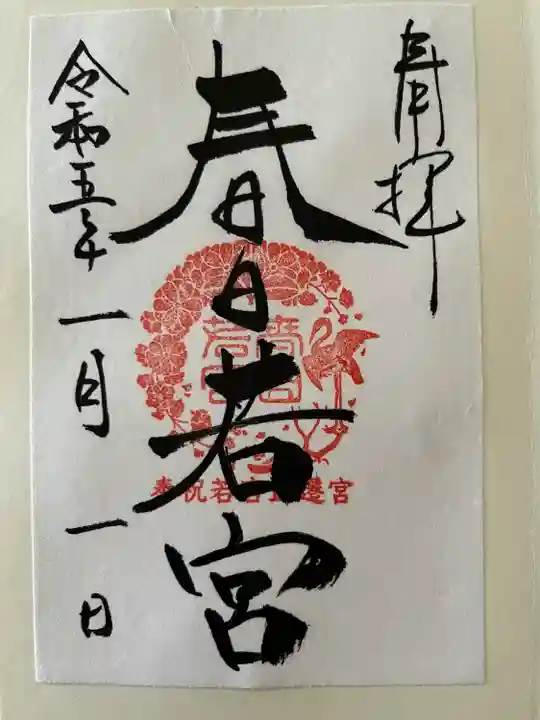 奉拝
春日若宮
令和五年
一月
一日
奉祝若宮式年造替